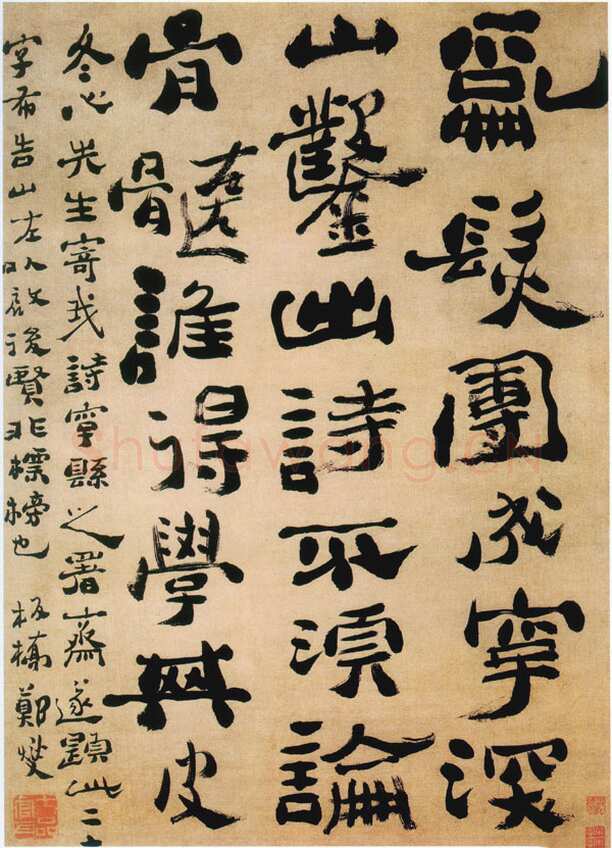 亂髮團成字深
山鑿出詩不須論
骨髓誰得學其皮
冬心先生寄我詩字縣之署齋遂題此二十
字布告山左以啟後賢非標榜也 板橋鄭燮
shufawang.CN